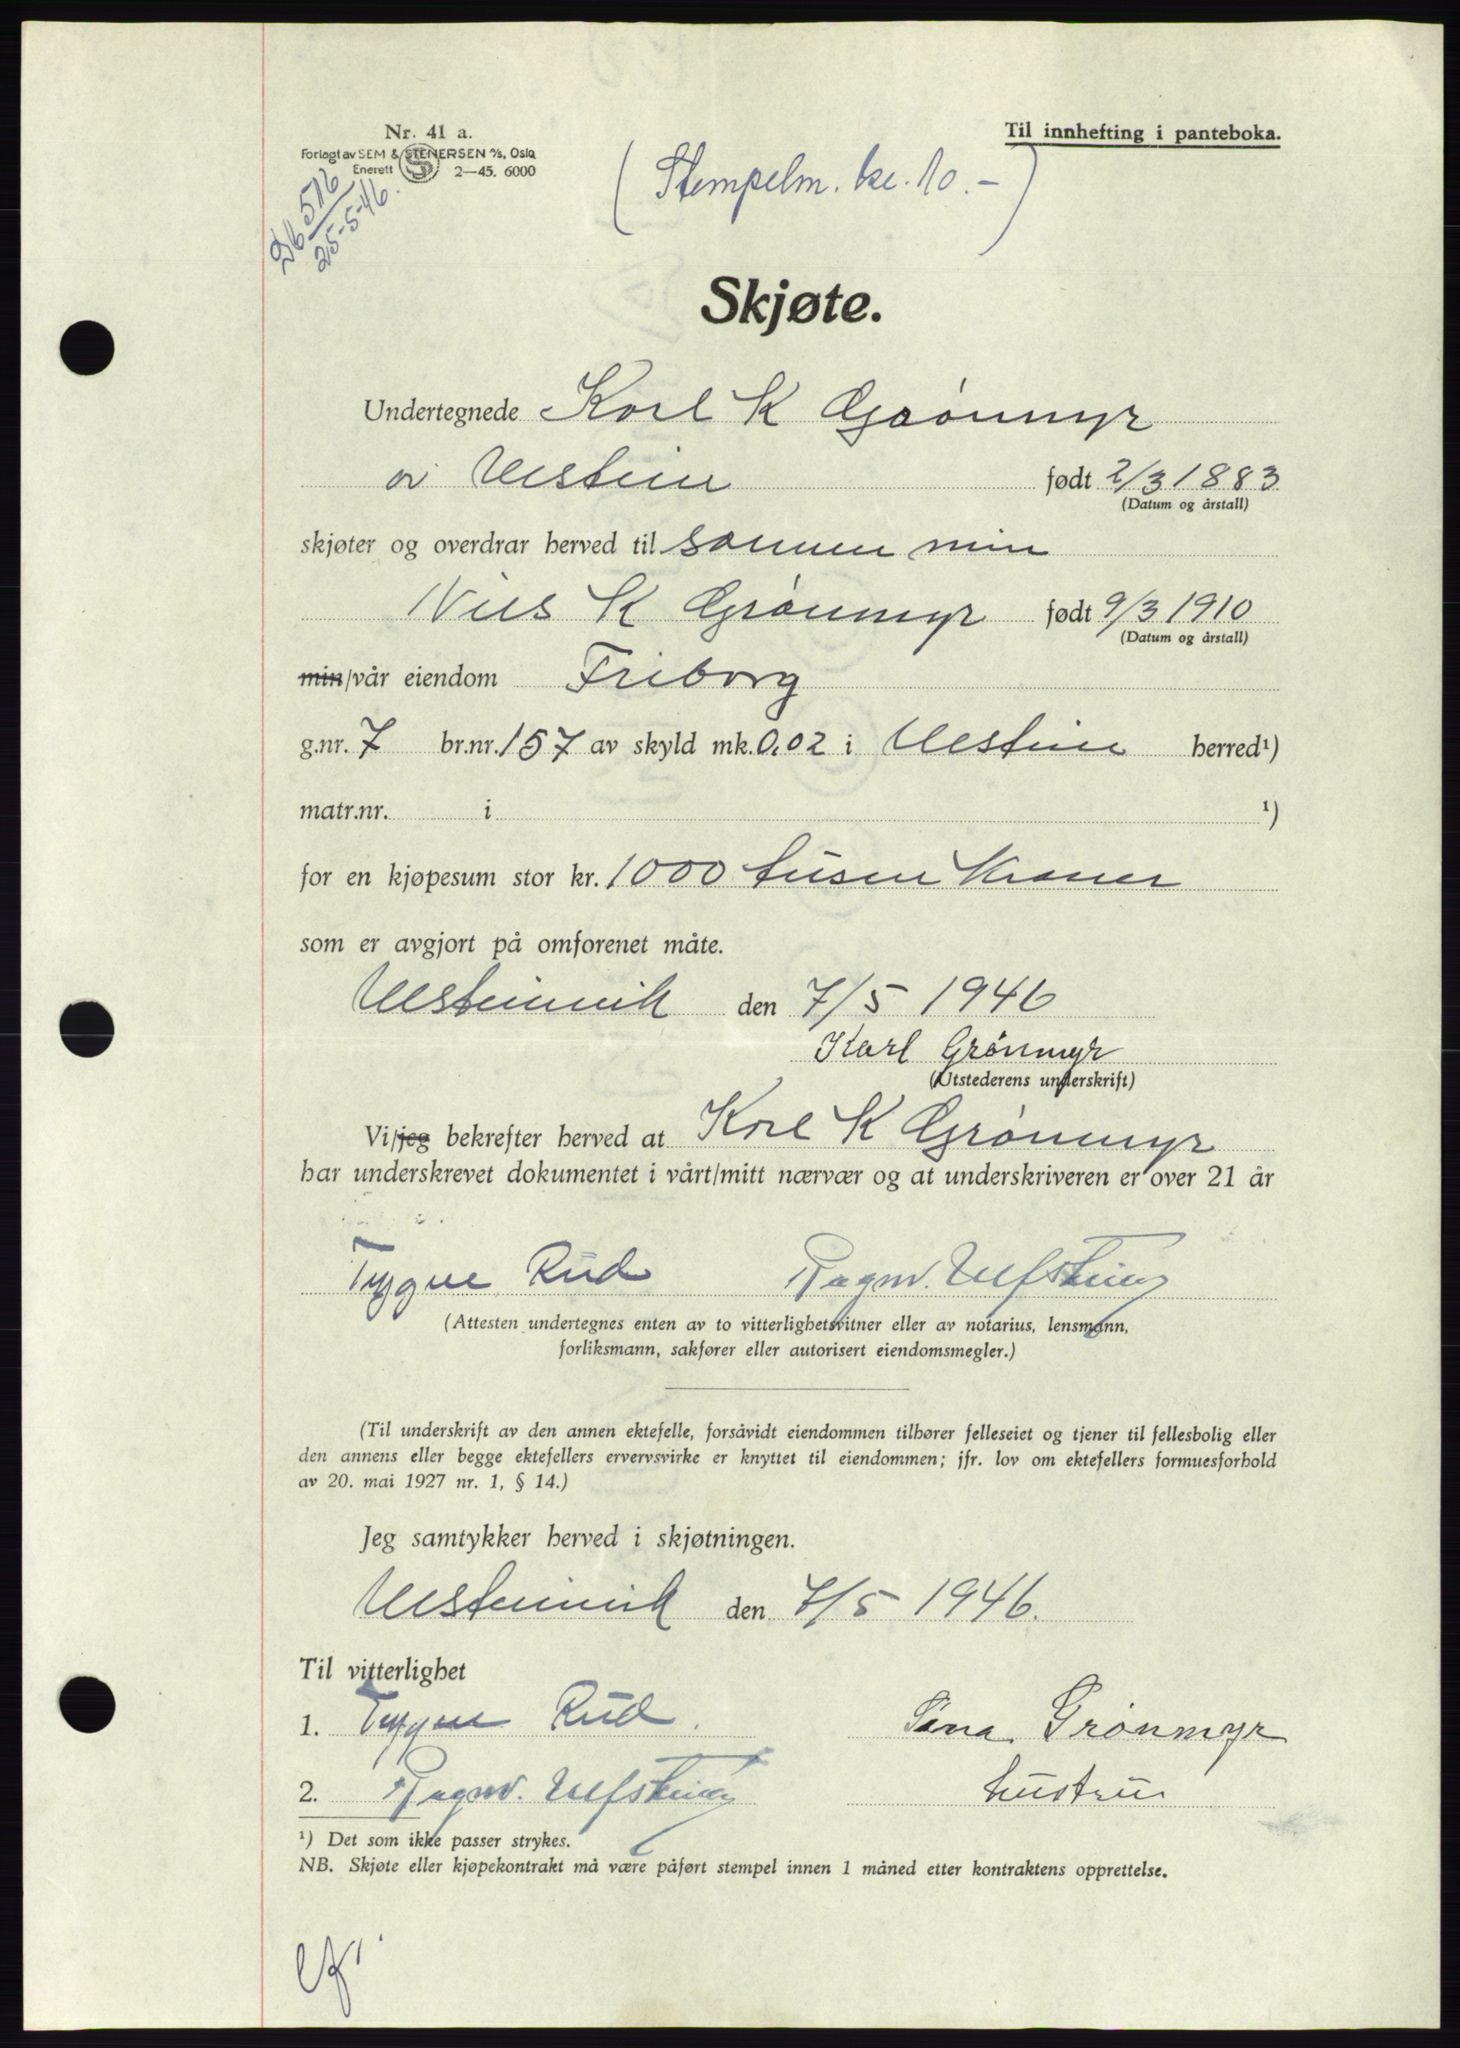 Nr. 41 a.
Forlagt av SEM & STENERSEN A/S, Oslo
Enerett 2—45. 6000
Til innhefting i panteboka.
Db 516
25-5-46.
(Stempelm. kr. 10.-)
Skjøte.
Undertegnede Karl K Grönmyr
av Ulstein født 2/3 1883
(Datum og årstall)
skjøter og overdrar herved til sönnen min
Nils K Grönmyr født 9/3 1910
(Datum og årstall)
min/vår eiendom Friborg
g.nr. 7 br.nr. 157 av skyld mk. 0,02 i Ulstein herred¹)
matr.nr. i ¹)
for en kjøpesum stor kr. 1000 tusen Kroner
som er avgjort på omforenet måte.
Ulsteinvik den 7/5 1946
Karl Grönmyr
(Utstederens underskrift)
Vi/jeg bekrefter herved at Karl K Grönmyr
har underskrevet dokumentet i vårt/mitt nærvær og at underskriveren er over 21 år
Trygve Rud Ragnv. Ulfstein
(Attesten undertegnes enten av to vitterlighetsvitner eller av notarius, lensmann,
forliksmann, sakfører eller autorisert eiendomsmegler.)
(Til underskrift av den annen ektefelle, forsåvidt eiendommen tilhører felleseiet og tjener til fellesbolig eller
den annens eller begge ektefellers ervervsvirke er knyttet til eiendommen; jfr. lov om ektefellers formuesforhold
av 20. mai 1927 nr. 1, § 14.)
Jeg samtykker herved i skjøtningen.
Ulsteinvik den 7/5 1946.
Til vitterlighet
1. Trygve Rud. Sina Grönmyr
2. Ragnv. Ulfstein hustru
¹) Det som ikke passer strykes.
NB. Skjøte eller kjøpekontrakt må være påført stempel innen 1 måned etter kontraktens opprettelse.